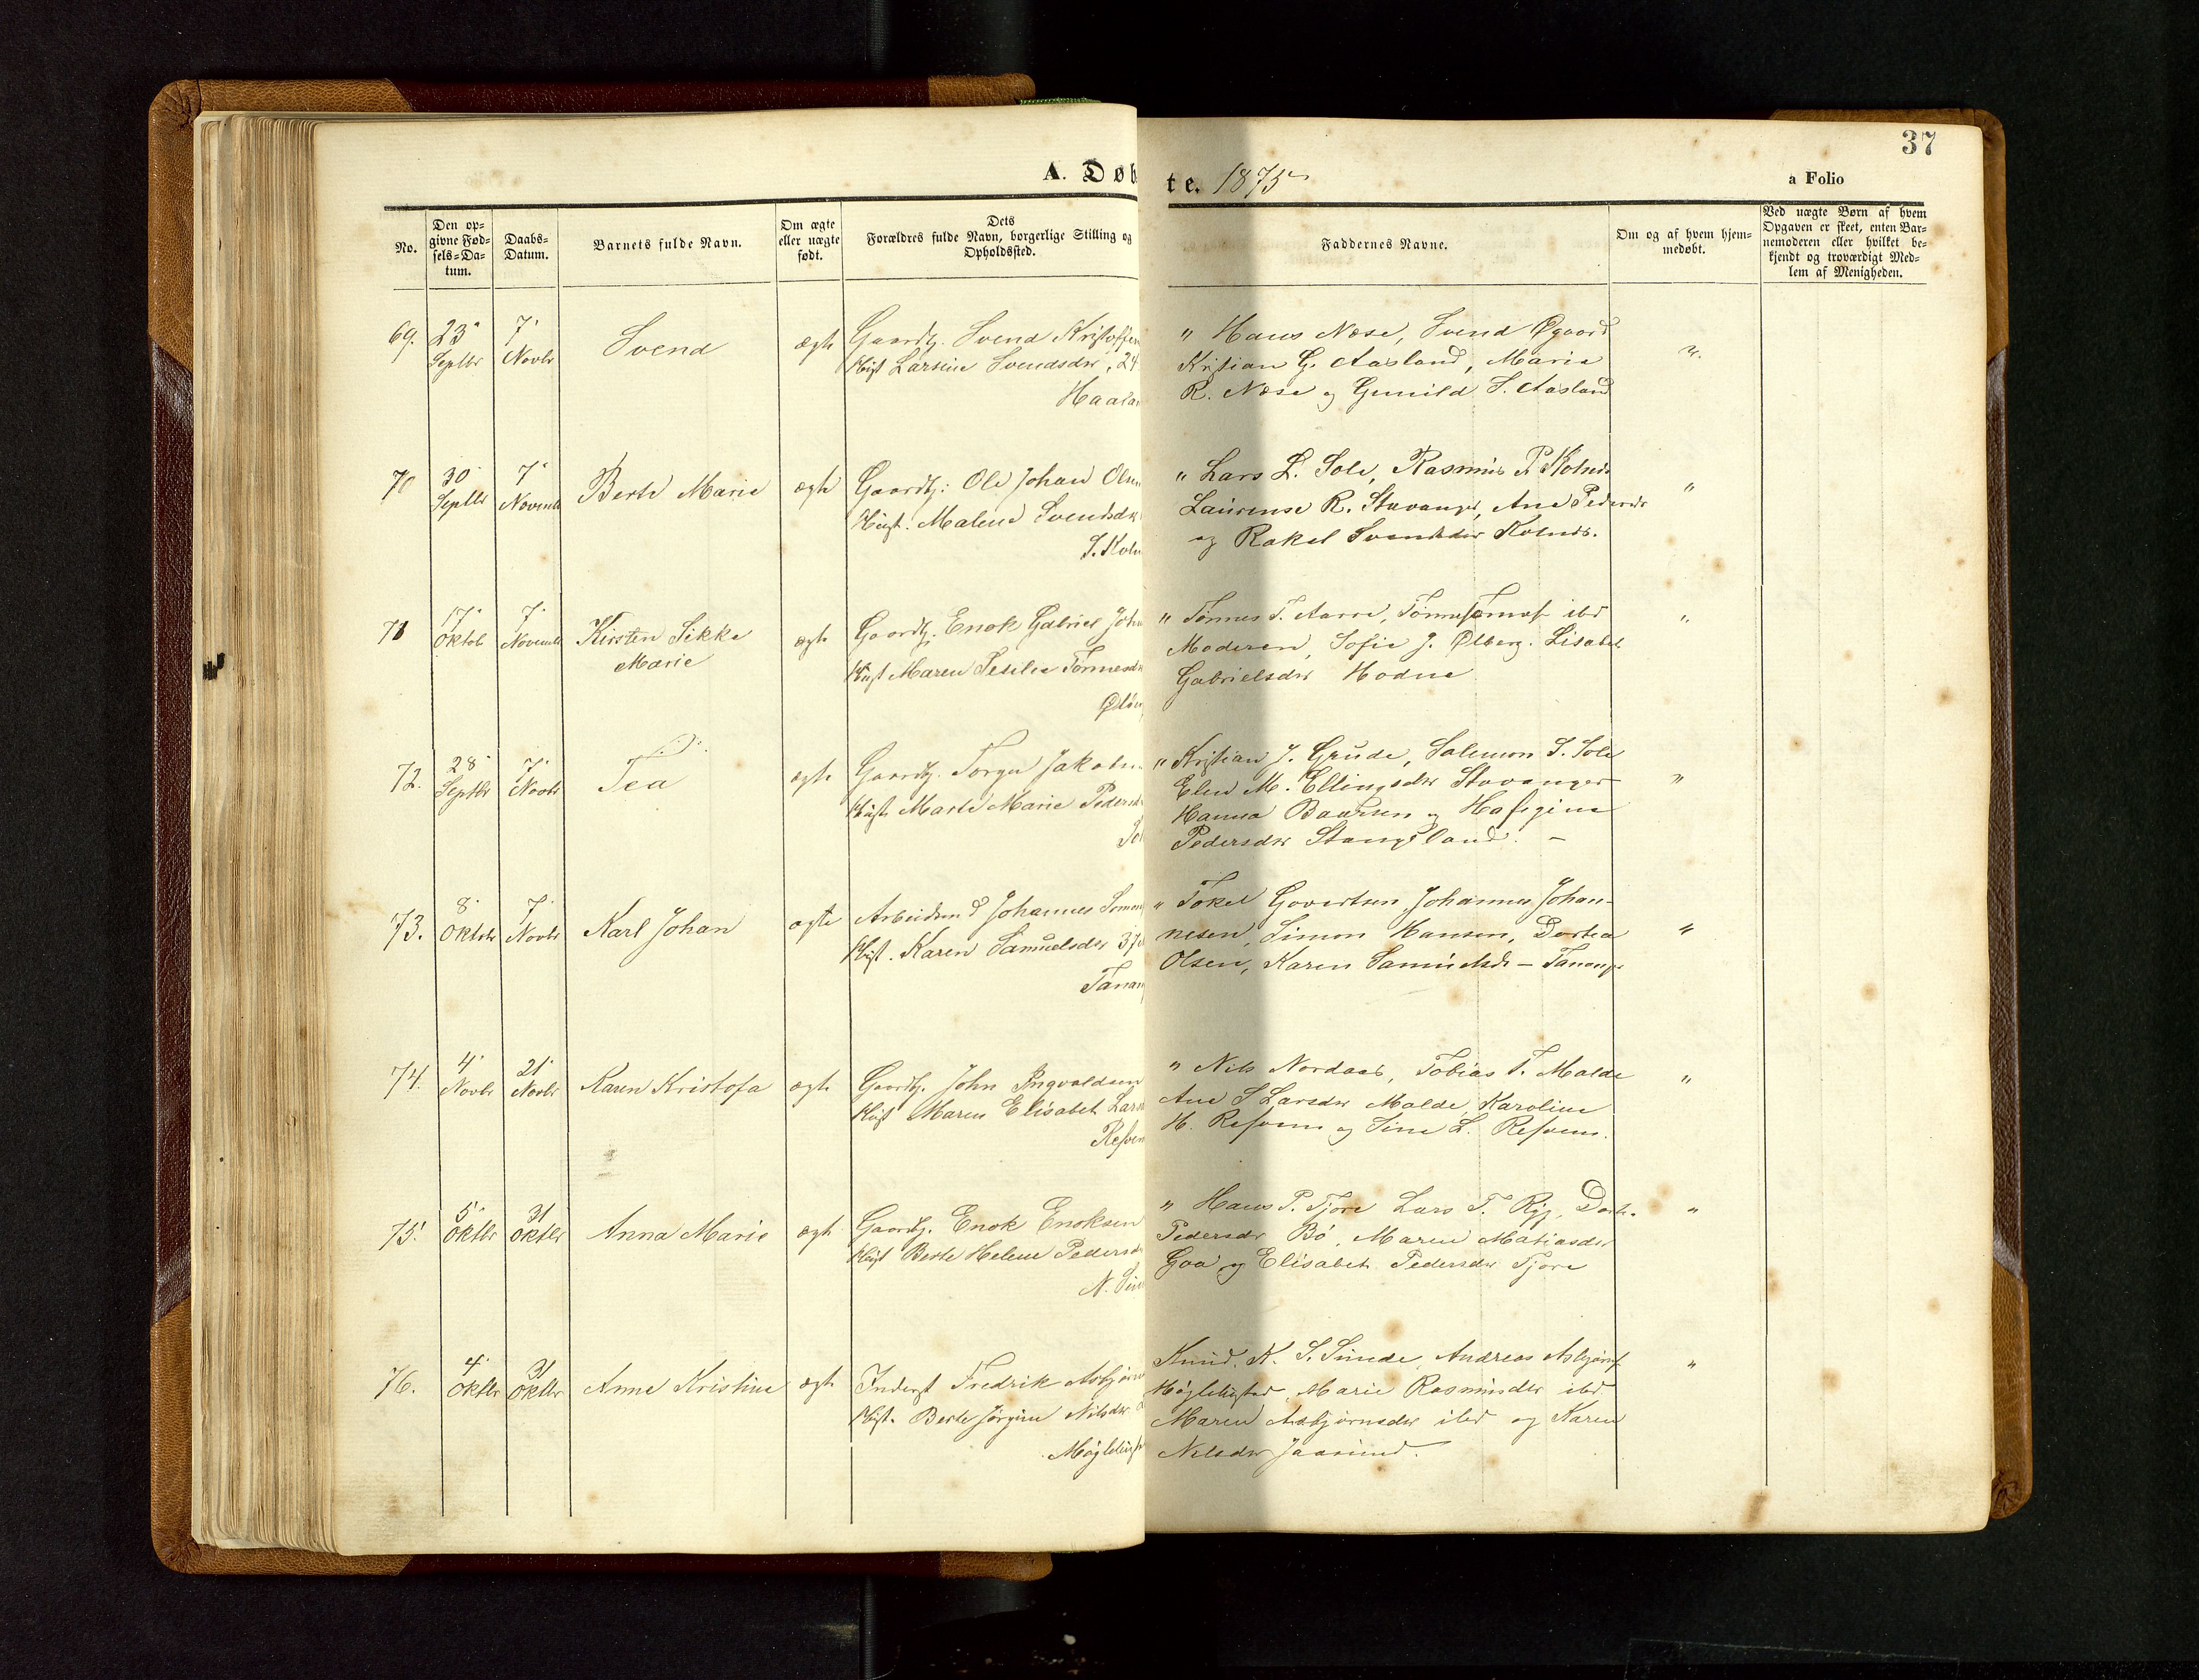 37
A. Døb
te. 1875
a Folio
No.
Den op-
givne Fød-
sels-Da-
tum.
Daabs-
Datum.
Barnets fulde Navn.
Om ægte
eller uægte
født.
Dets
Forældres fulde Navn, borgerlige Stilling og
Opholdssted.
Faddernes Navne.
Om og af hvem hjem-
medøbt.
Ved uægte Børn af hvem
Opgaven er skeet, enten Bar-
nemoderen eller hvilket be-
kjendt og troværdigt Med-
lem af Menigheden.
69. 23 7
Septbr Novbr
Svend
ægte
Gaardbr. Svend Kristoffer
Hust Larsine Svendsdr, 24
Haalan
" Hans Nese, Svend Øgaard
Kristian G. Aasland, Marie
R. Nese og Gunild S. Aasland
70 30 7
Septbr Novemb
Berte Marie
ægte
Gaardbr: Ole Johan Olsen
Hust. Malene Svendsdr
S. Koln
" Lars L. Sole, Rasmus P. Kolnes
Laurense R. Stavanger, Ane Pedersdr
og Rakel Svendsdr Kolnes.
"
71 17 7
Oktob Novemb
Kirsten Sikke
Marie
ægte
Gaardbr. Enok Gabriel John
Hust Maren Tønnesdr
" Tønnes T. Aarre, ibd
Moderen, Sofie J. Ølberg. Lisabet
Gabrielsdr Hodne
"
72. 28 7
Septbr Novbr
Tea
ægte
Gaardbr. Torger Jakobsen
Hust. Marte Marie Pedersdr
Sol
" Kristian J. Grude, Salemon S. Sole
Elen M. Ellingsdr Stavanger
Hanna Baarsen og
Pedersdr Stangeland. –
"
73. 8 7
Oktobr Novbr
Karl Johan
ægte
Arbeidsmd Johannes Simon
Hust. Karen Samuelsdr 37
Tanan
" Tokel Govertsen, Johannes Johan-
nesen, Simon Hansen, Dortea
Olsen, Karen Samuelsdr – Tananger
"
74. 4 21
Novbr Novbr
Karen Kristofa
ægte
Gaardbr. John Ingvaldsen
Hust Maren Elisabet Lars
Refsn
" Nils Nordaas, Tobias T. Malde
Ane S Larsdr Malde, Karoline
H. og Sine L.
"
75. 5 31
Oktbr Oktbr
Anna Marie
ægte
Gaardbr. Enok Enoksen
Hust Berte Helene Pedersdr
" Hans P. Tjore Lars T. Røg, Dorte
Pedersdr Bø, Maren Matiasdr
Goa og Elisabet Pedersdr Tjore
"
76. 4 31
Oktbr Oktbr
Anne Kristine
ægte
Inderst Fredrik Asbjørn
Hust. Berte Jørgine Nilsdr
Møglebust
Knud K. S. Sunde, Andreas Asbjørns
Møglebustad, Marie Rasmusdr ibd
Maren Asbjørnsdr ibd og Karen
Nilsdr Jaasund.
"